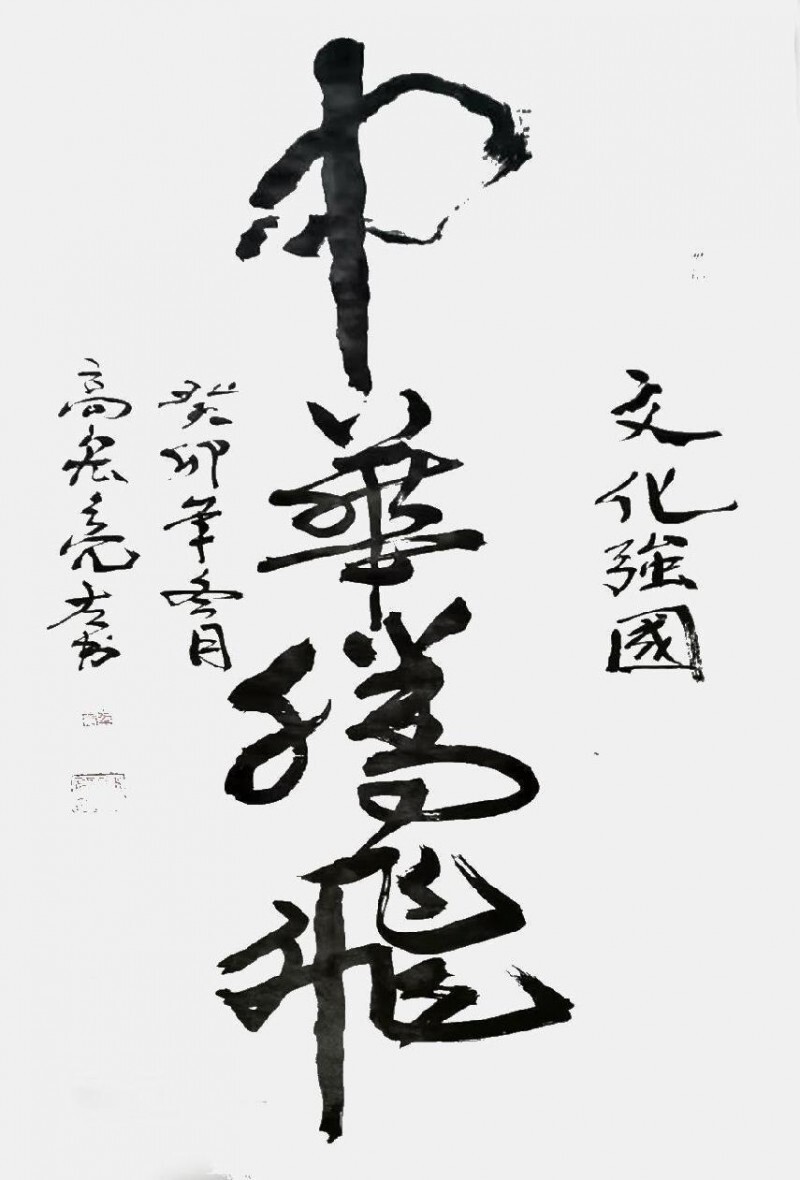 文化強國
中華騰飛
癸卯年冬月
高宏亮书